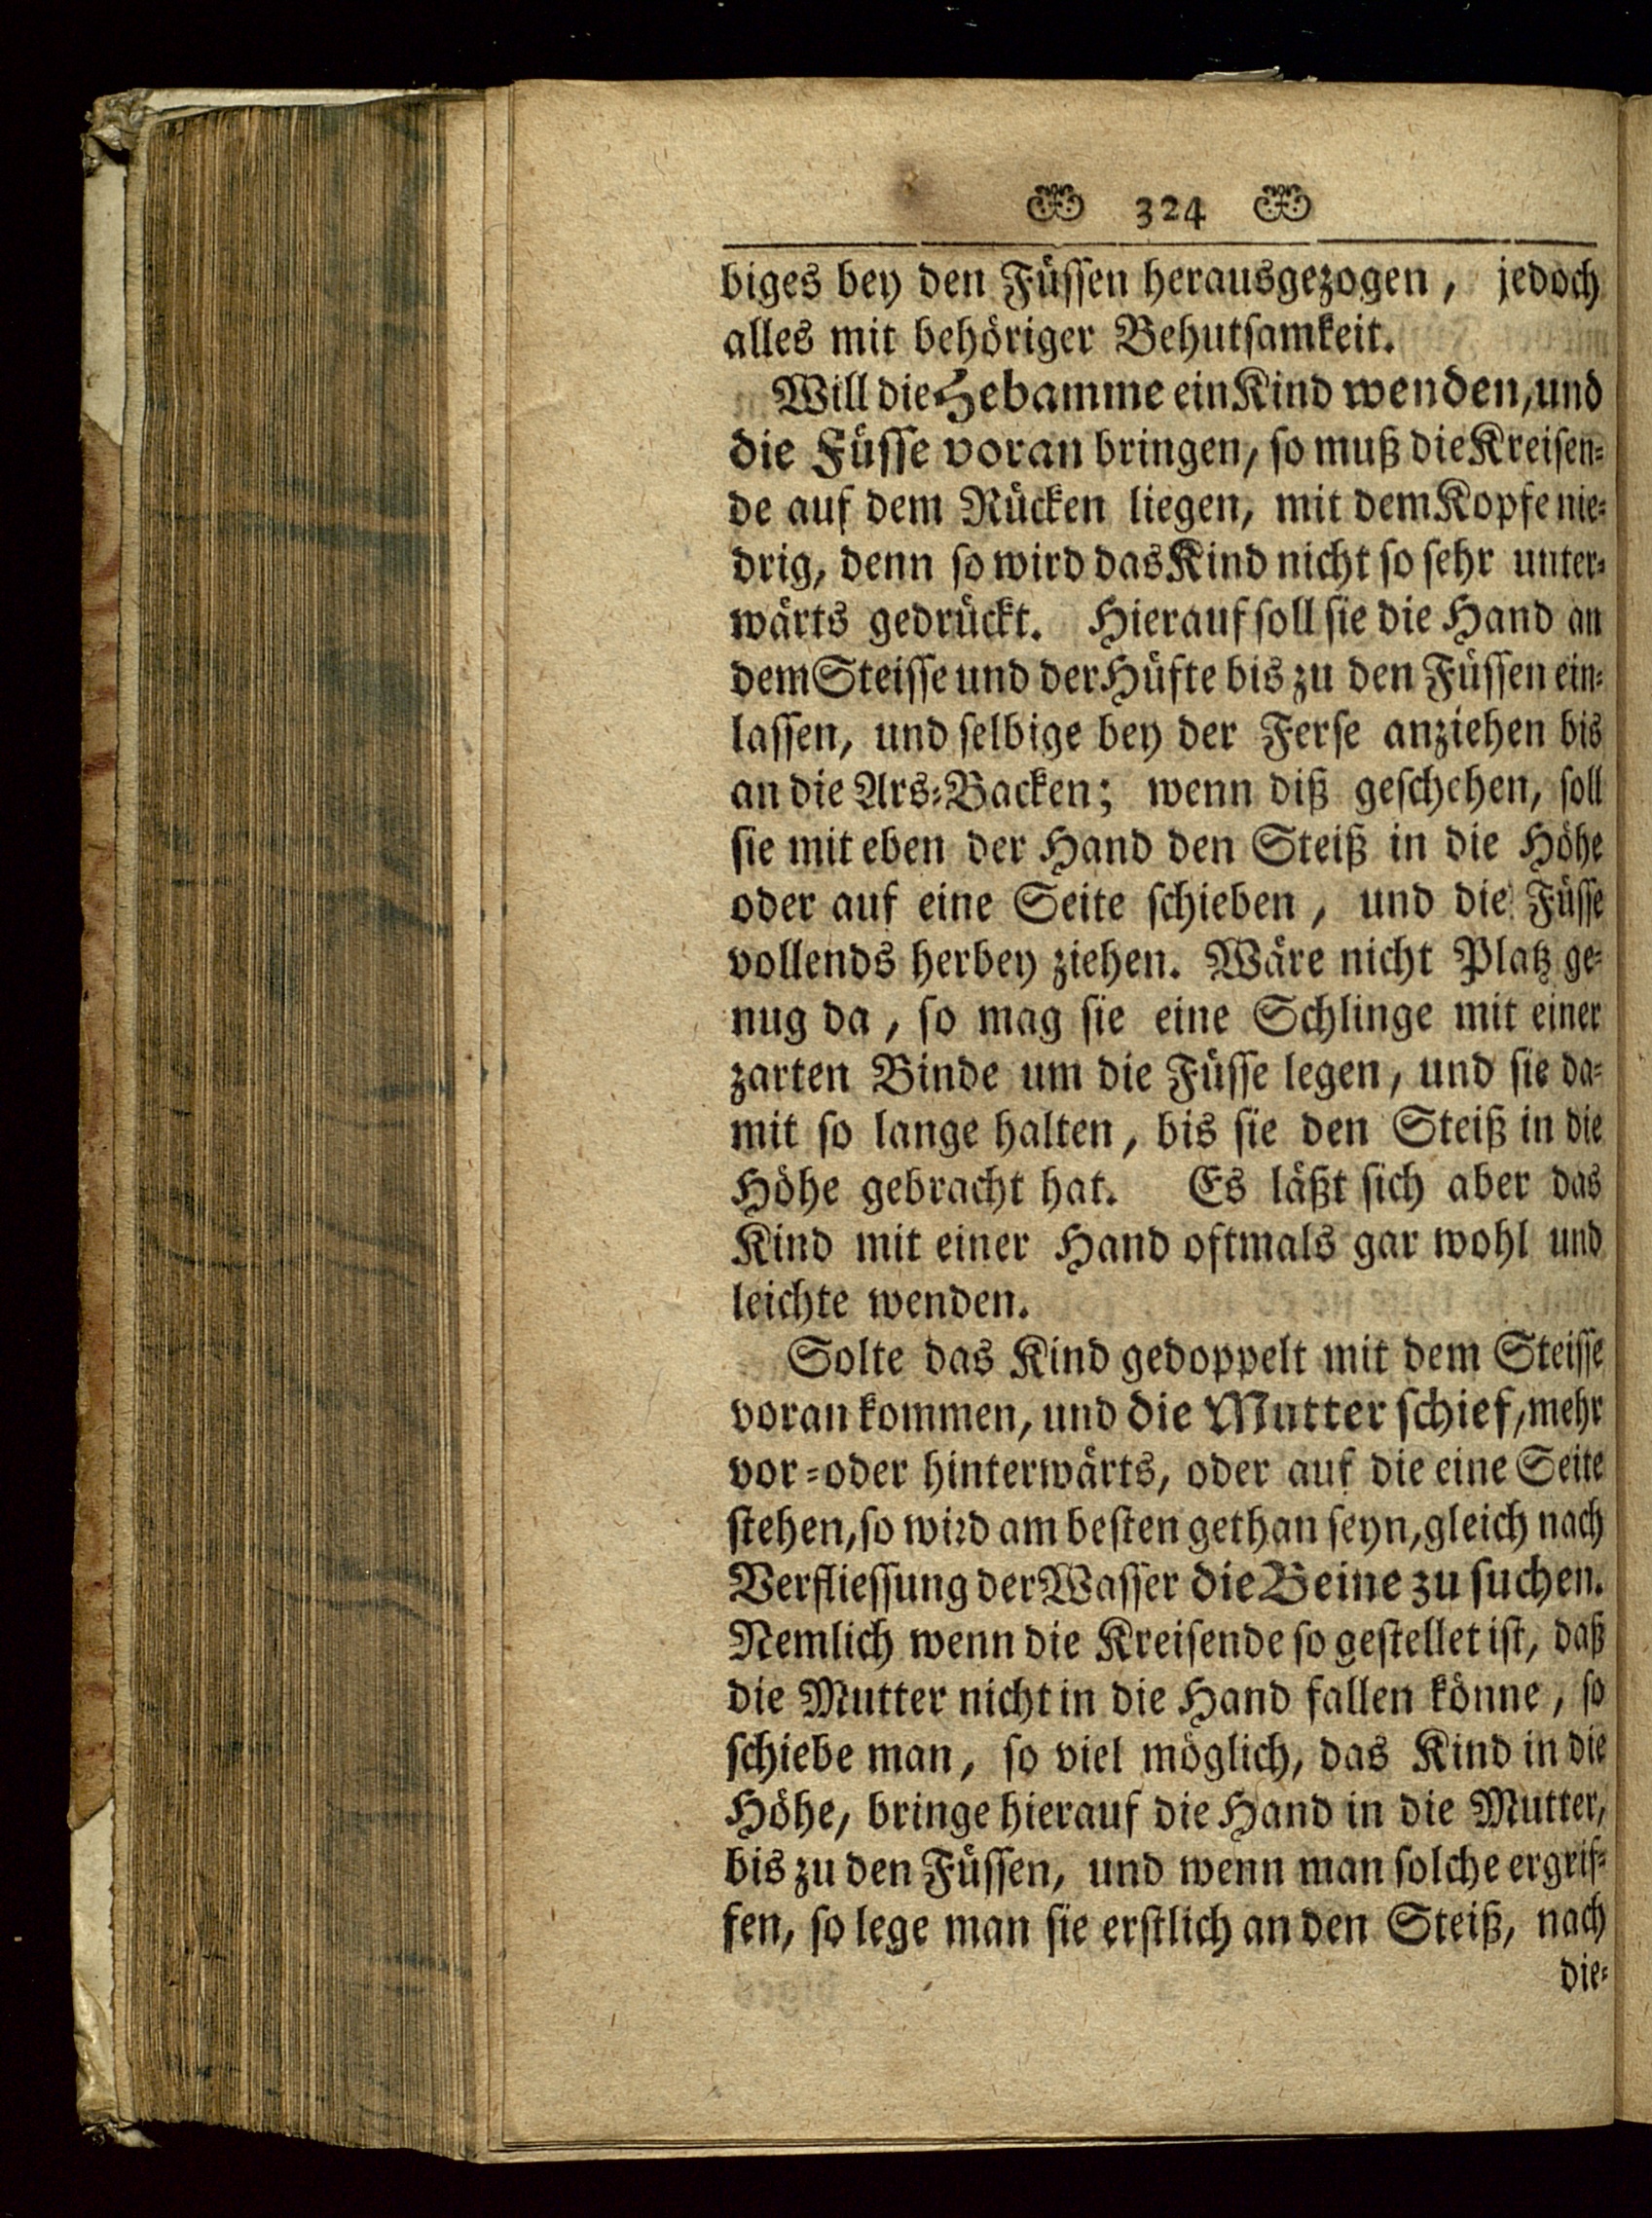 324
biges bey den Füssen herausgezogen, jedoch
alles mit behöriger Behutsamkeit.
Will die Hebamme ein Kind wenden, und
die Füsse voran bringen, so muß die Kreisen-
de auf dem Rücken liegen, mit dem Kopfe nie-
drig, denn so wird das Kind nicht so sehr unter-
wärts gedrückt. Hierauf soll sie die Hand an
dem Steisse und der Hüfte bis zu den Füssen ein-
lassen, und selbige bey der Ferse anziehen bis
an die Ars-Backen; wenn diß geschehen, soll
sie mit eben der Hand den Steiß in die Höhe
oder auf eine Seite schieben, und die Füsse
vollends herbey ziehen. Wäre nicht Platz ge-
nug da, so mag sie eine Schlinge mit einer
zarten Binde um die Füsse legen, und sie da-
mit so lange halten, bis sie den Steiß in die
Höhe gebracht hat. Es läßt sich aber das
Kind mit einer Hand oftmals gar wohl und
leichte wenden.
Solte das Kind gedoppelt mit dem Steisse
voran kommen, und die Mutter schief, mehr
vor-oder hinterwärts, oder auf die eine Seite
stehen, so wird am besten gethan seyn, gleich nach
Verfliessung der Wasser die Beine zu suchen.
Nemlich wenn die Kreisende so gestellet ist, daß
die Mutter nicht in die Hand fallen könne, so
schiebe man, so viel möglich, das Kind in die
Höhe, bringe hierauf die Hand in die Mutter,
bis zu den Füssen, und wenn man solche ergrif-
fen, so lege man sie erstlich an den Steiß, nach
die-